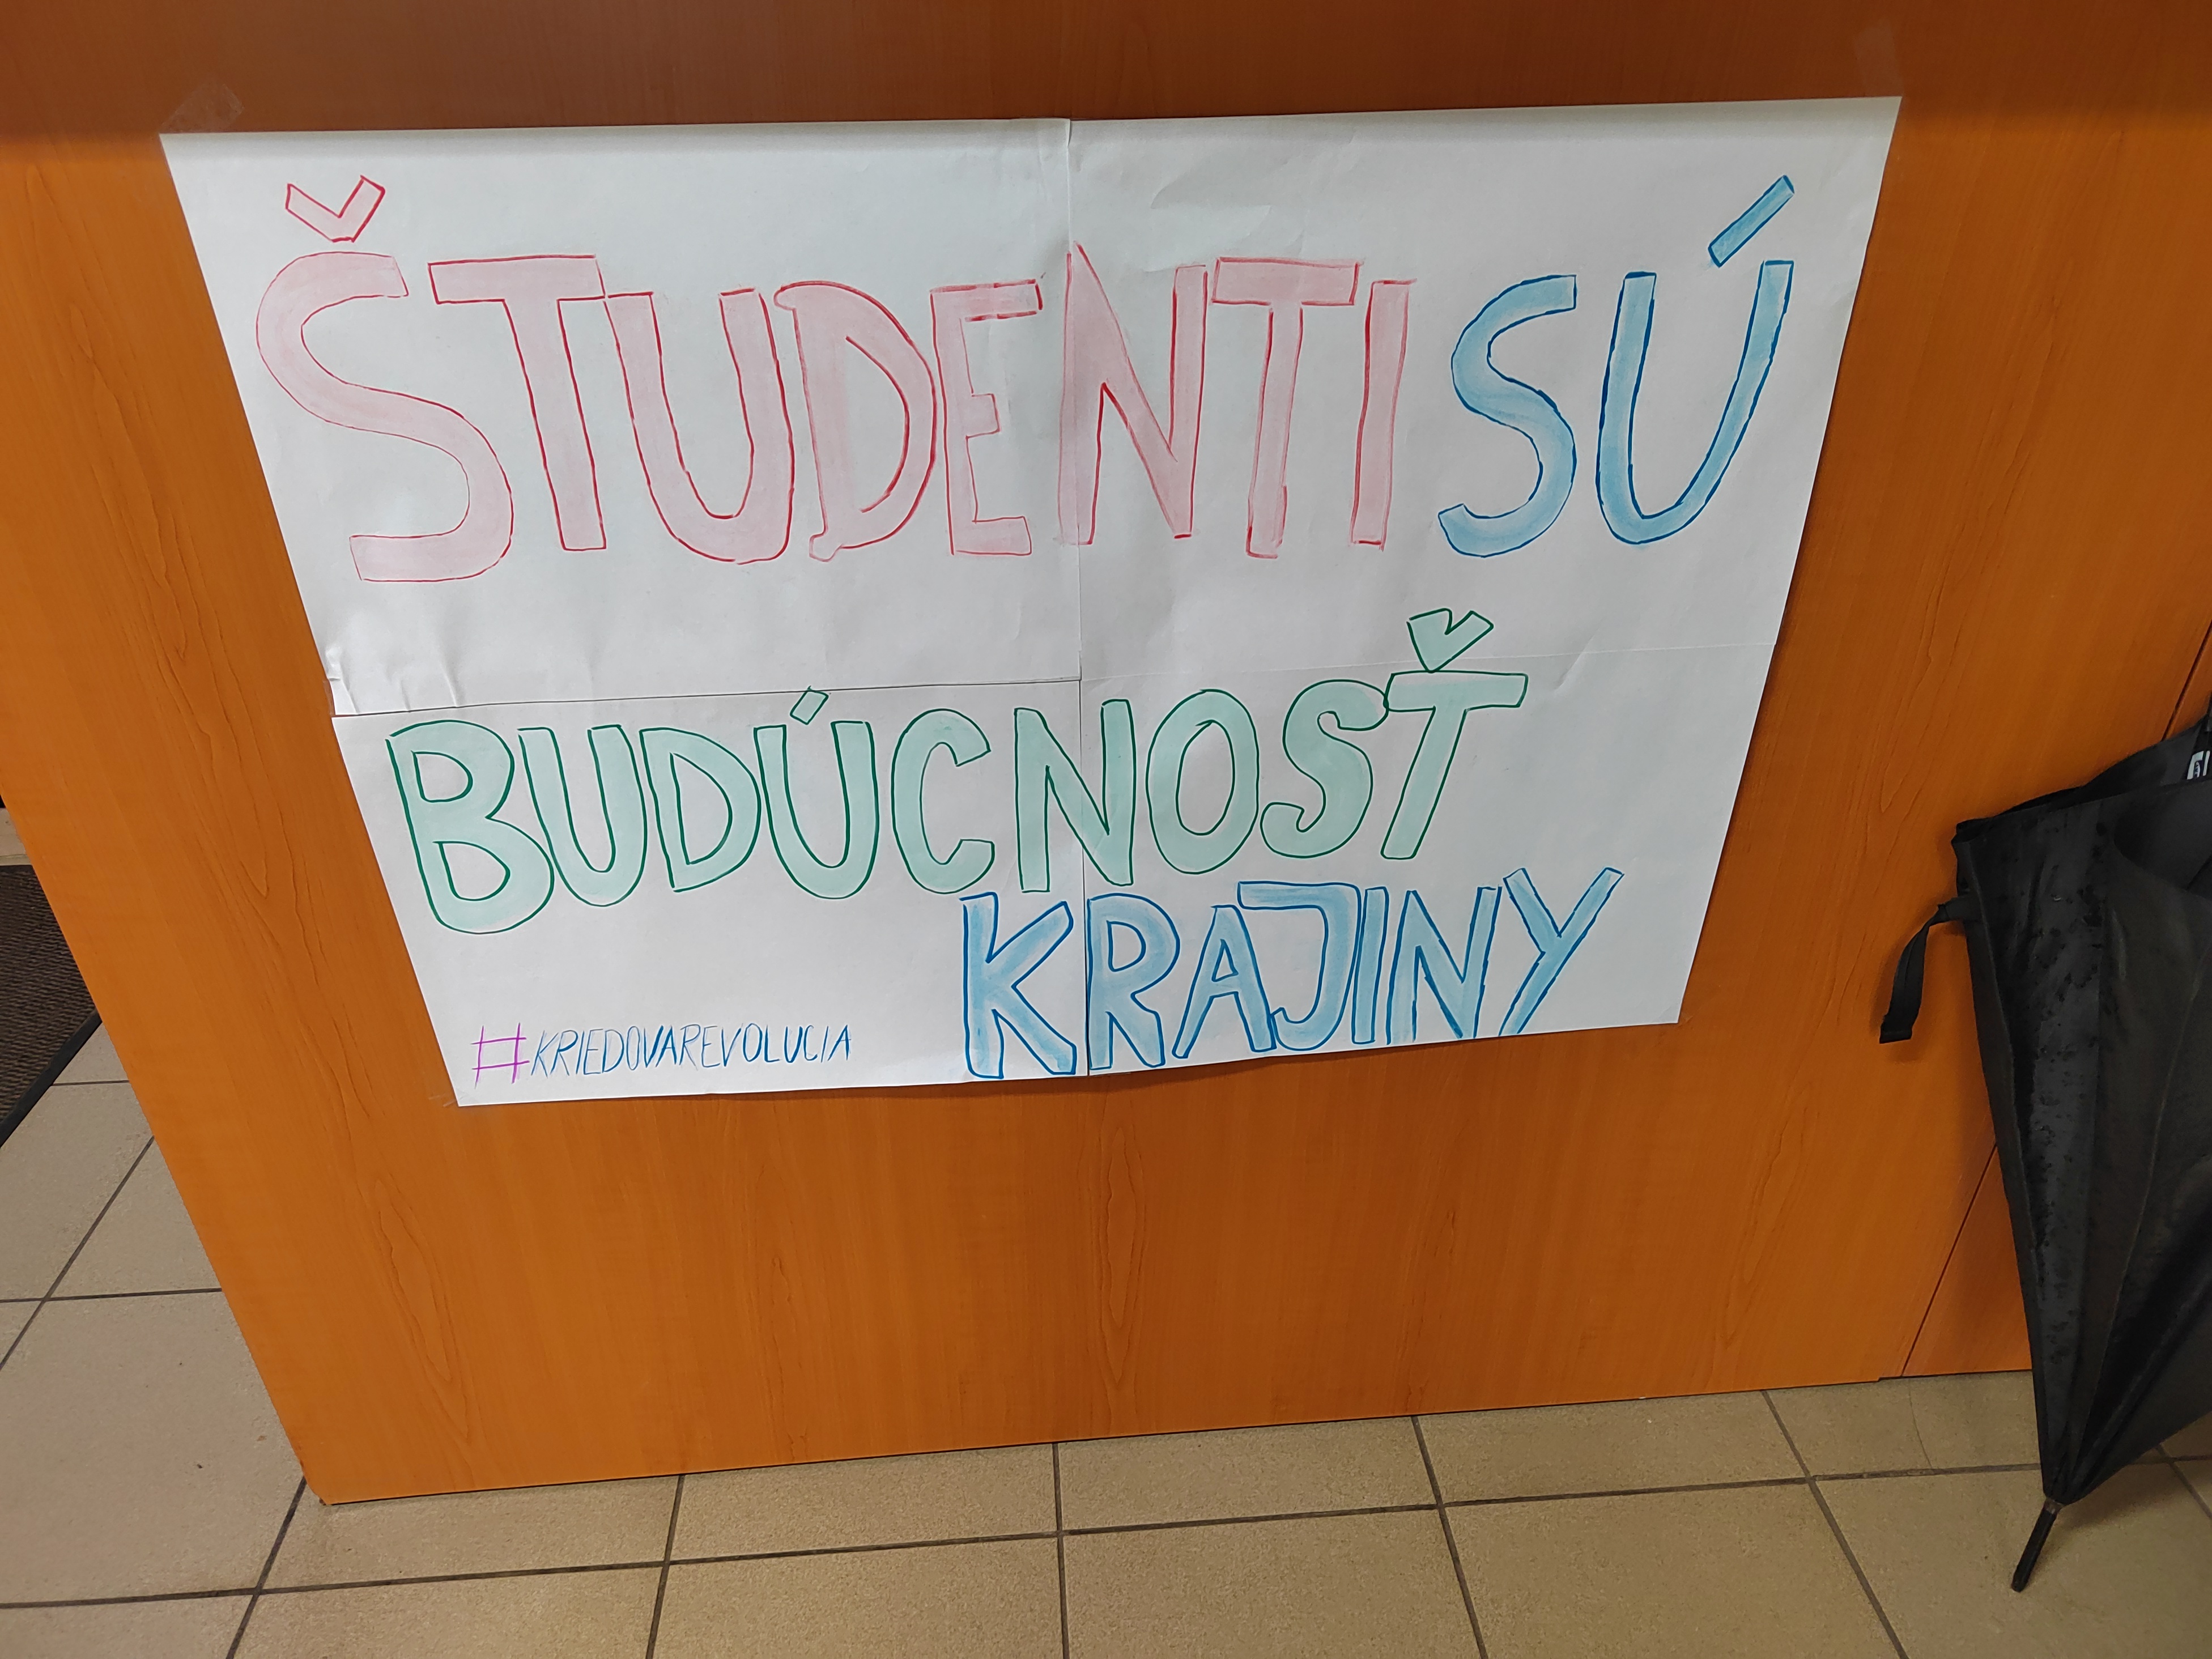 ŠTUDENTI SÚ
BUDÚCNOSŤ
KRAJINY
#KRIEDOVAREVOLUCIA